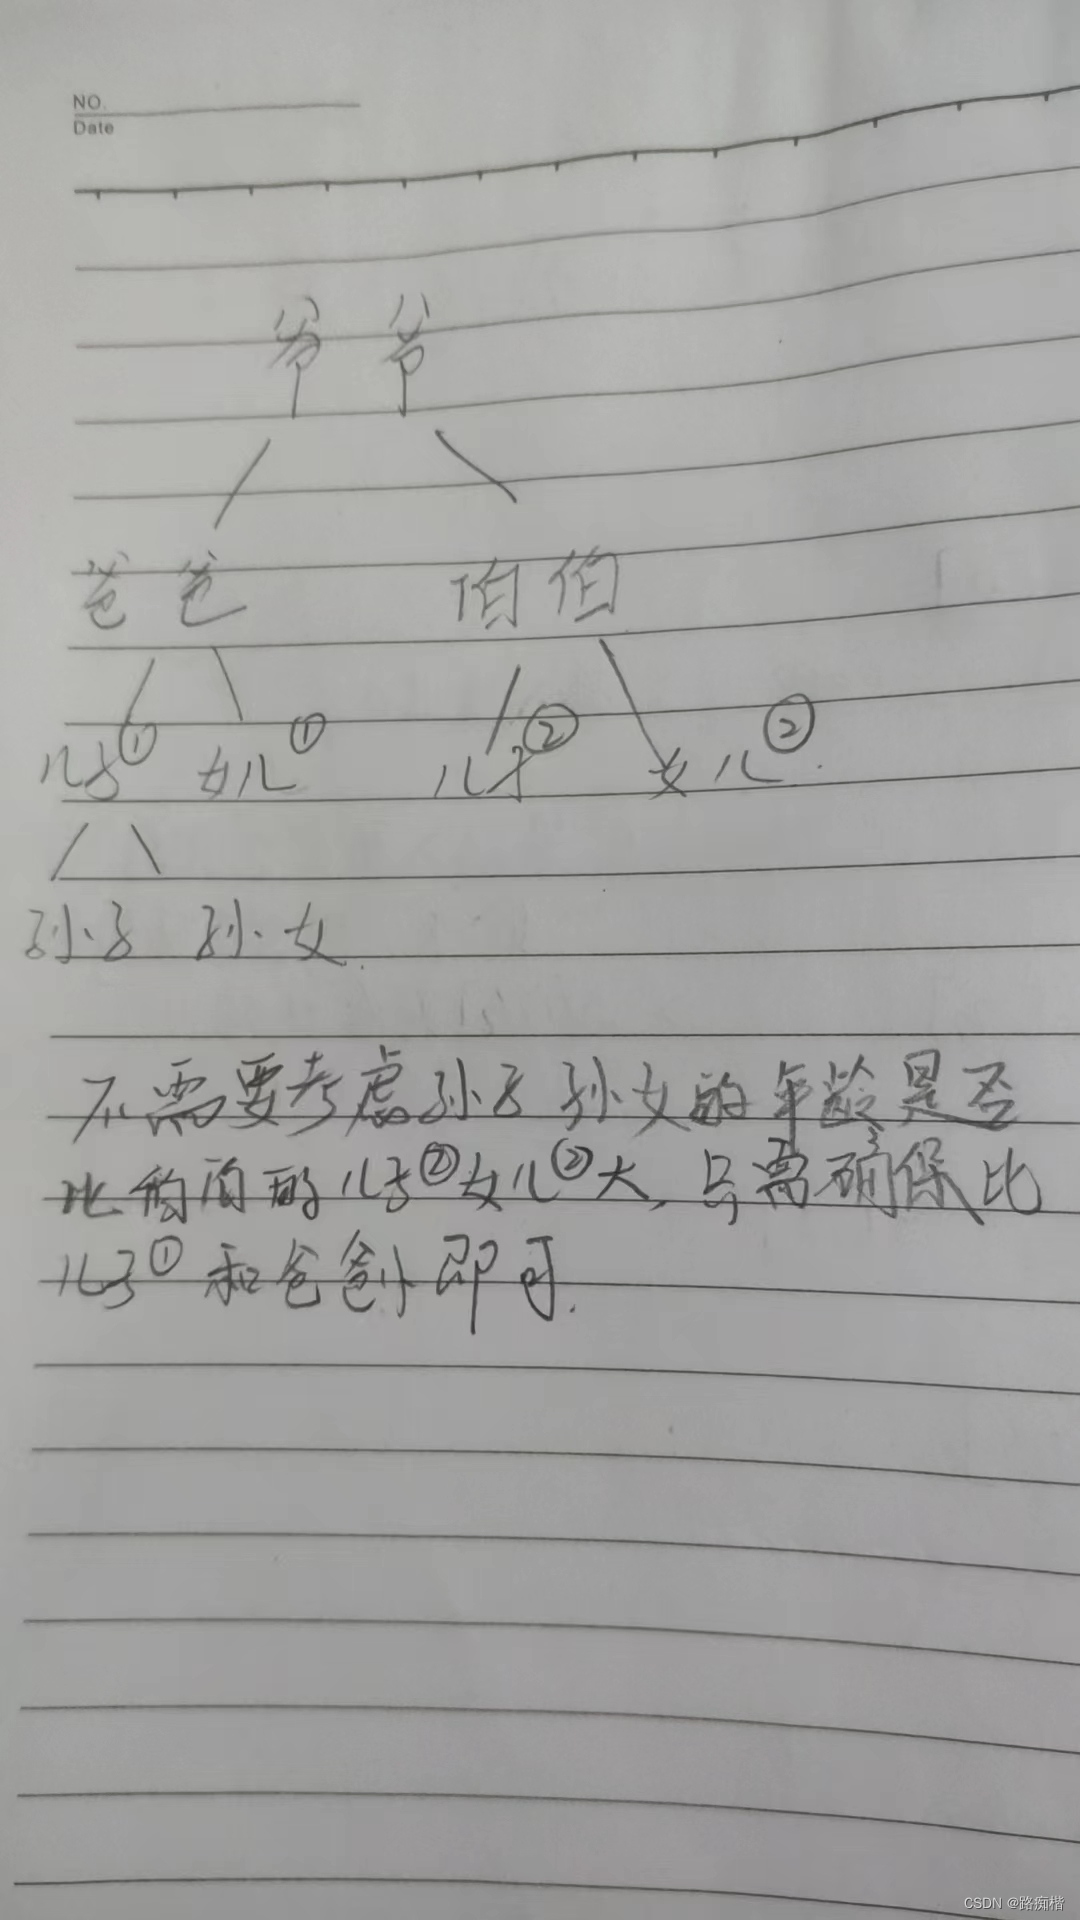 NO.
Date
爷 爷
爸 爸 伯 伯
儿子① 女儿① 儿子② 女儿②.
孙子 孙女.
不需要考虑孙子孙女的年龄是否
比伯伯的儿子②女儿②大,只需确保比
儿子①和爸爸小即可.
CSDN @路痴楷